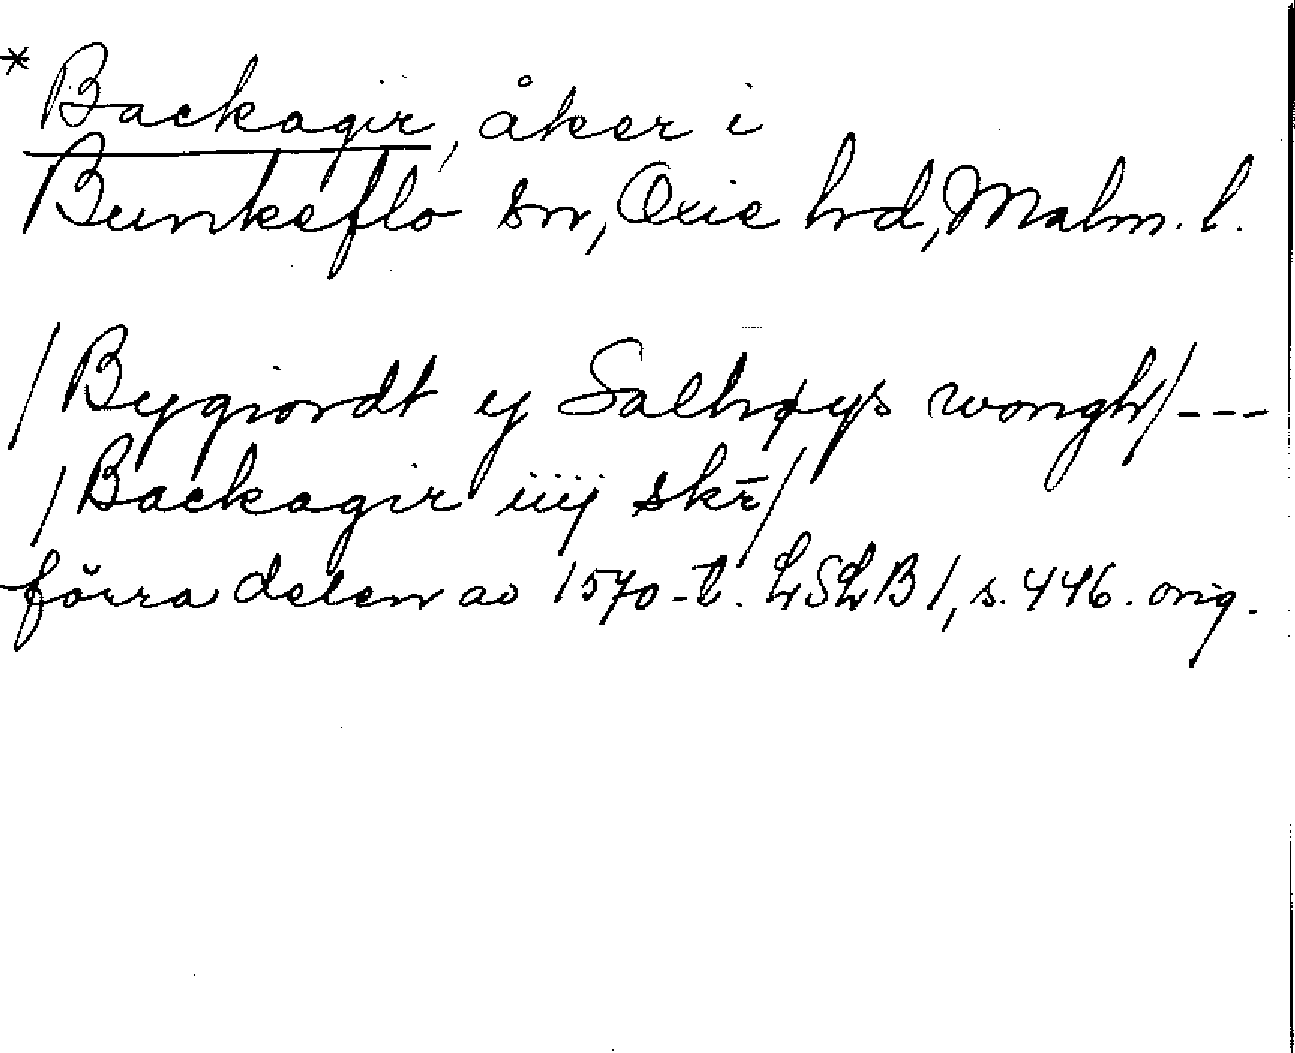 * Backagir, åker i
Bunkeflo sn, Oxie hd, Malm. l.
/Bygiordt y Salhøys wongh/---
/Backagir iiij skr̄/
förra delen av 1570-t. LSLB 1, s. 446. orig.